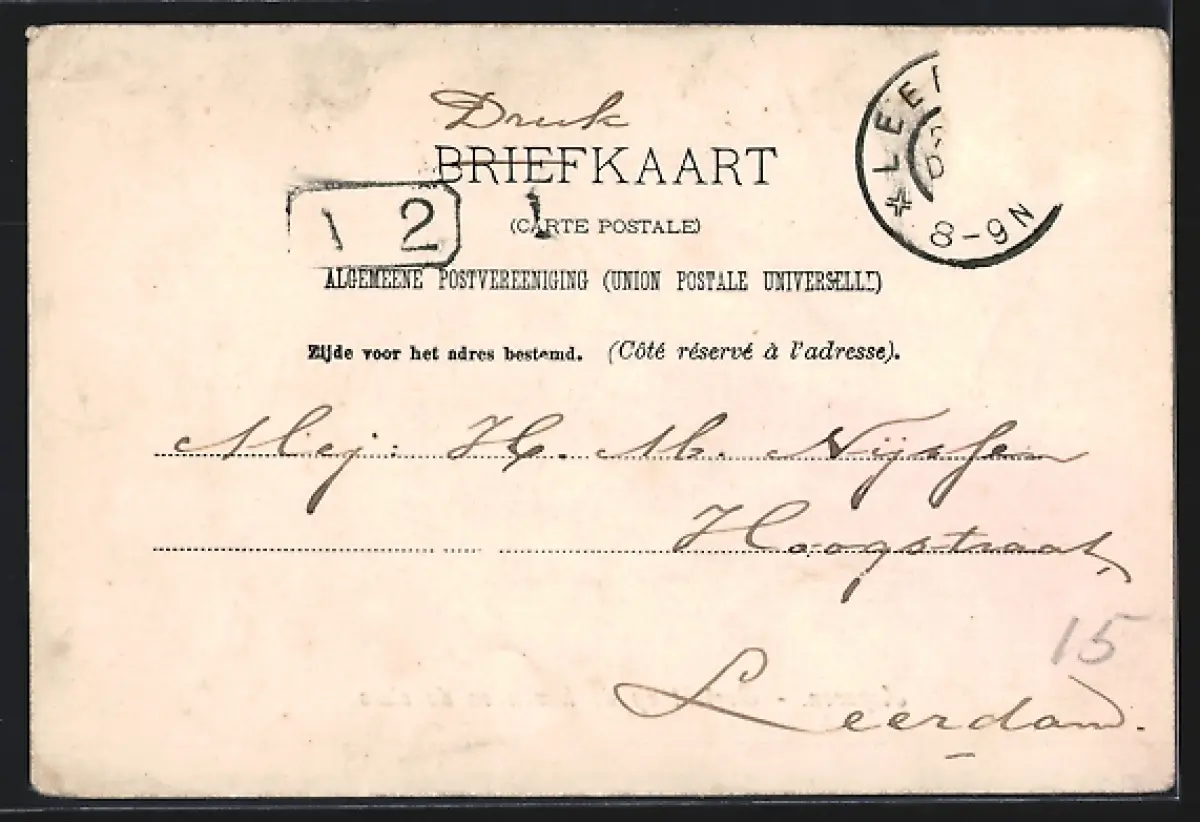 Druk
BRIEFKAART
(CARTE POSTALE)
1 2
ALGEMEENE POSTVEREENIGING (UNION POSTALE UNIVERSELLE)
Zijde voor het adres bestemd. (Côté réservé à l'adresse).
LEER
8-9N
Mej: H. M. Nijssen
Hoogstraat,
15
Leerdam.